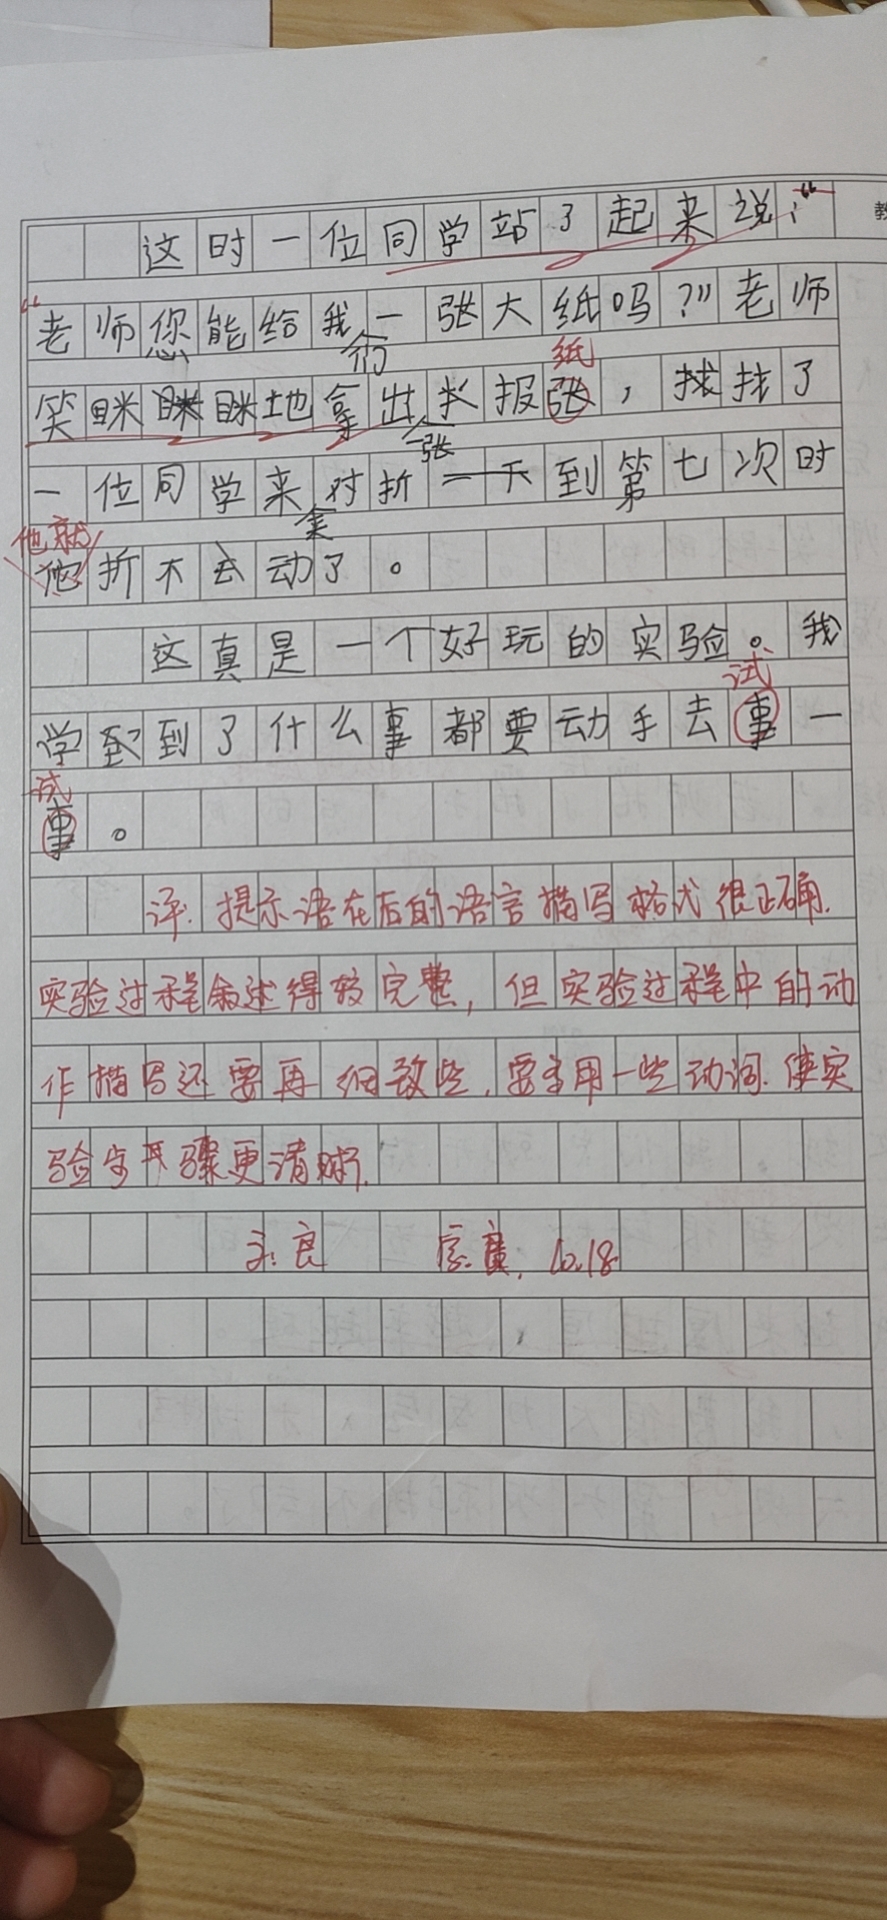 这时一位同学站了起来说：“
“老师您能给我们一张大纸吗？”老师
笑眯眯地拿出一张报纸，找找了
一位同学来对折
到第七次时
他就
折不动了。
这真是一个好玩的实验。我
学到了什么事都要动手去试一
试。
评：提示语在后的语言描写格式很正确.
实验过程叙述得较完整，但实验过程中的动
作描写还要再细致些，要多用一些动词.使实
验步骤更清晰.
10.18